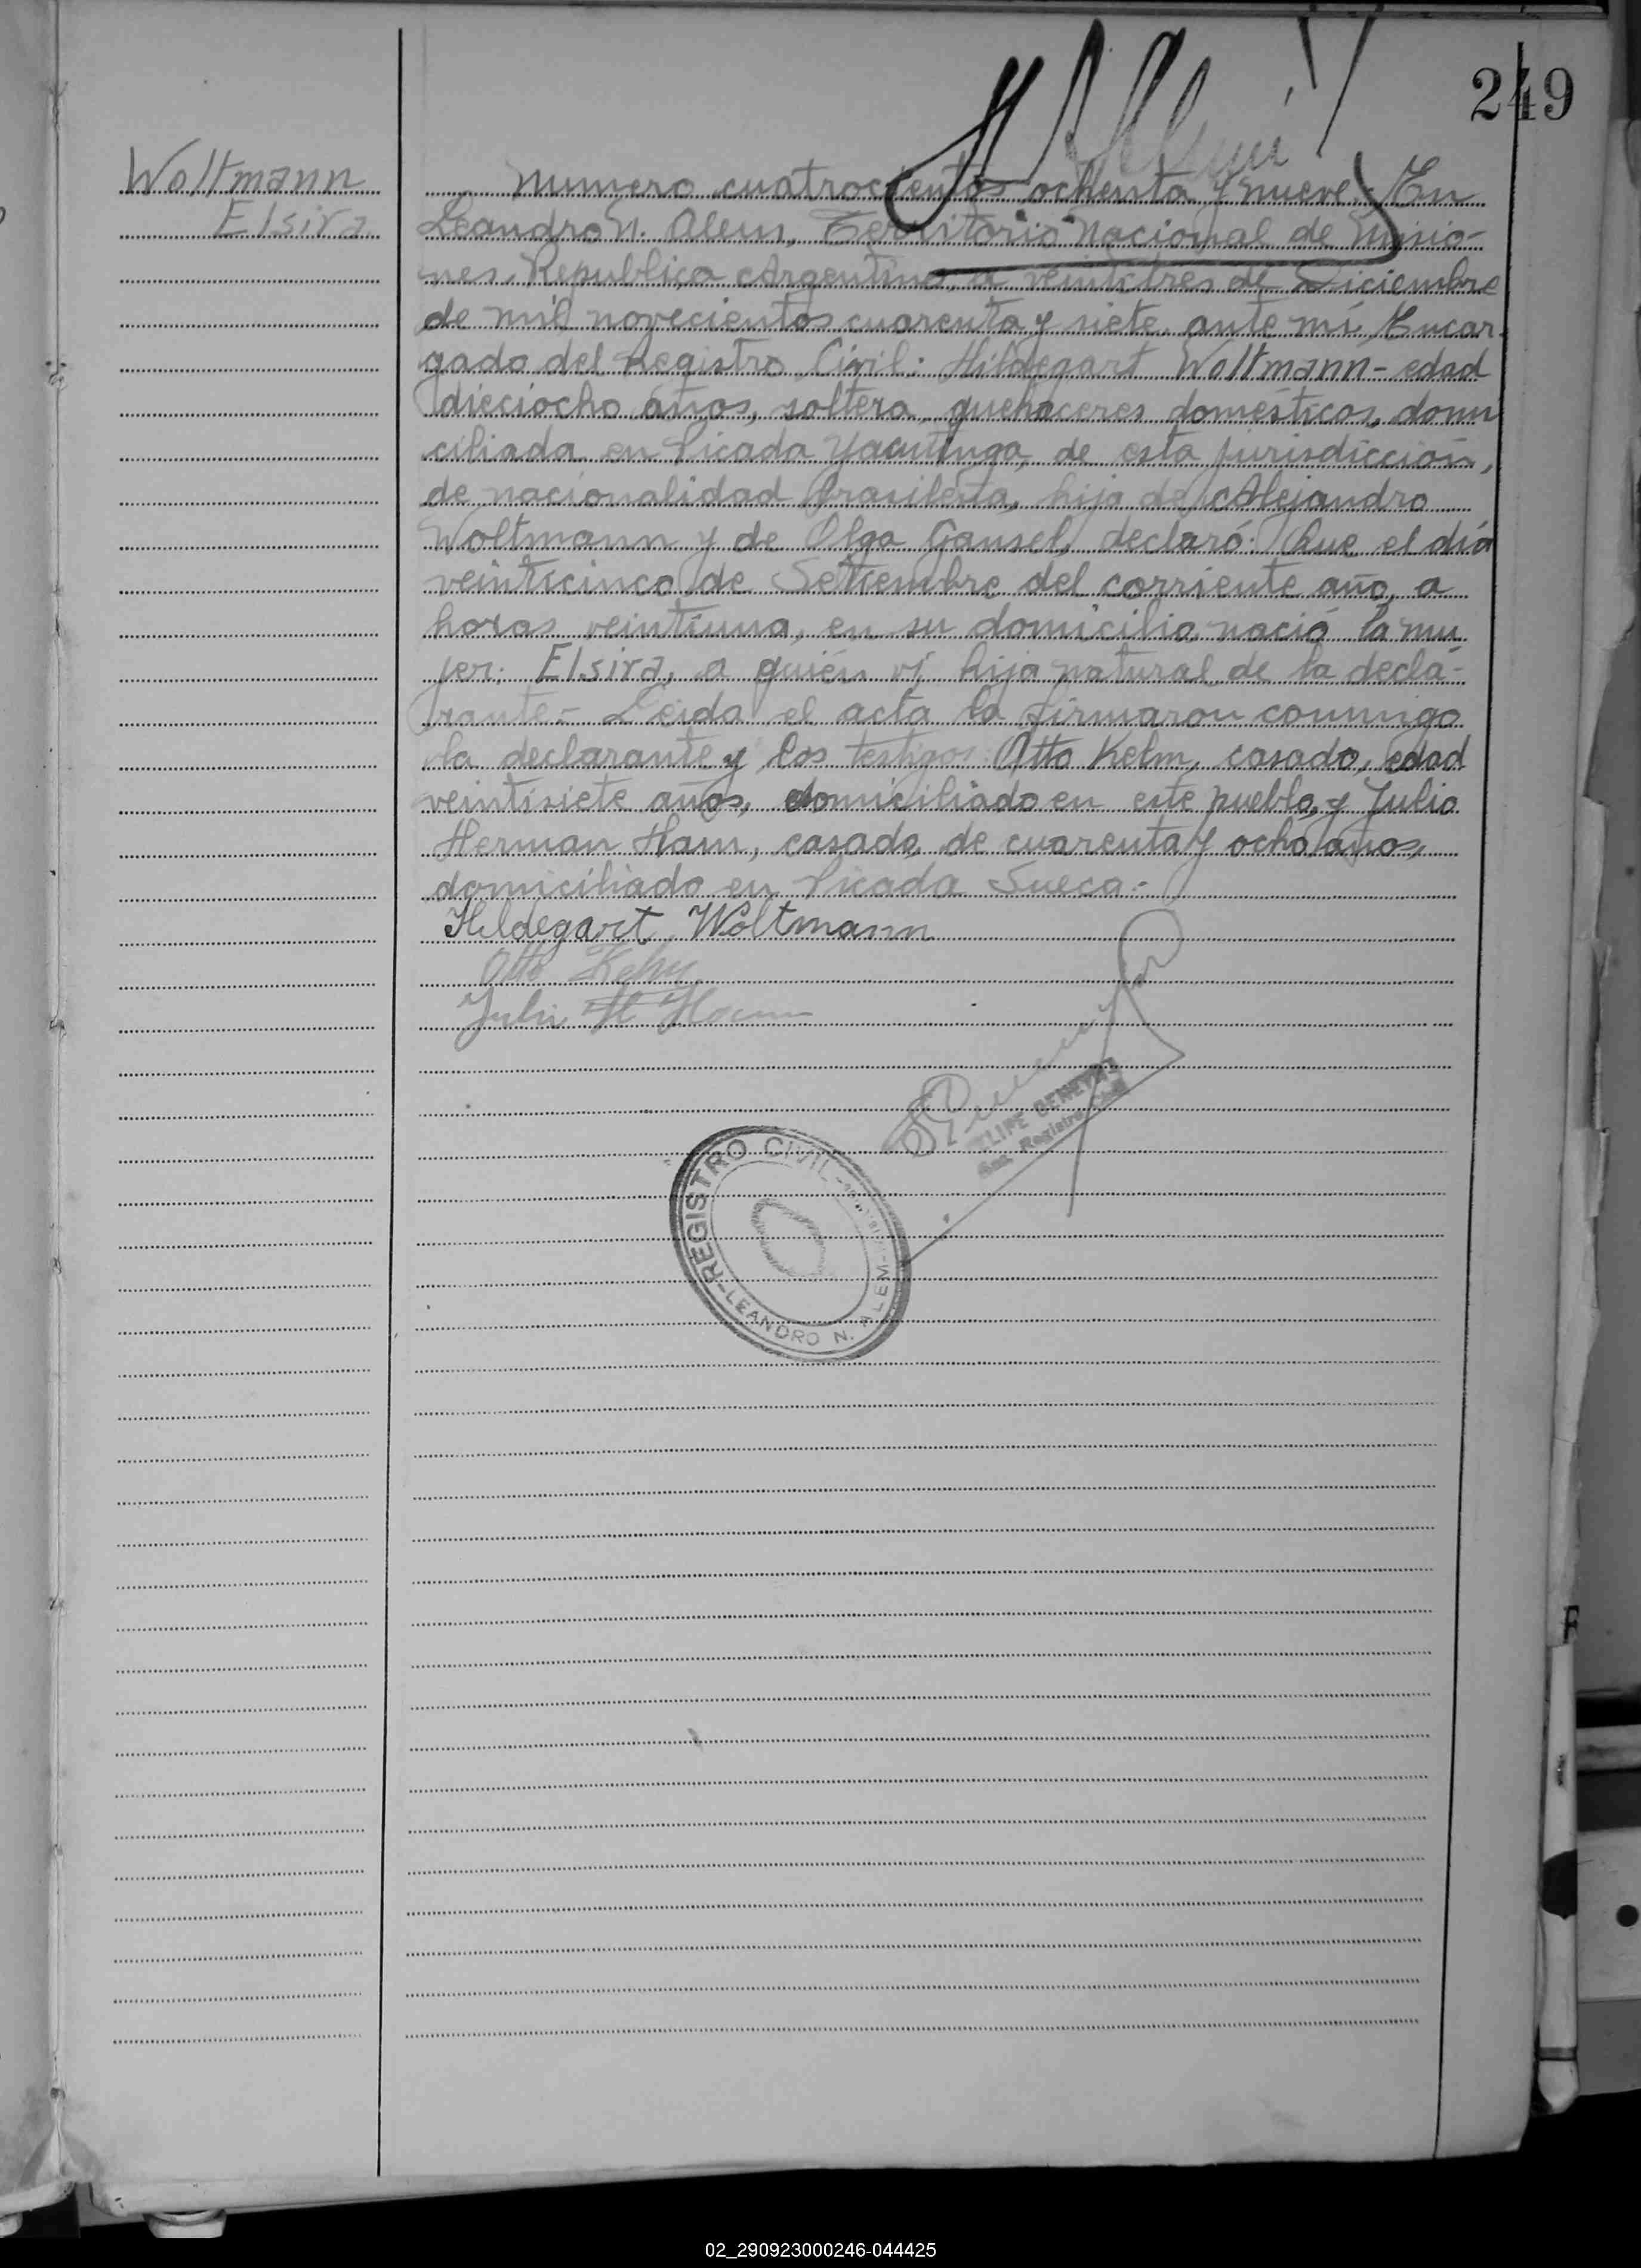 249
Woltmann
Elsira
Numero cuatrocientos ochenta y nueve.- En
Leandro N. Alem, Territorio Nacional de Misio-
nes, Republica Argentina, a veintitres de Diciembre
de mil novecientos cuarenta y siete, ante mí, Encar-
gado del Registro Civil: Hildegart Woltmann - edad
dieciocho años, soltera, quehaceres domésticos, domi
ciliada en Picada Yacutinga, de esta jurisdicción,
de nacionalidad brasileña, hija de Alejandro
Woltmann y de Olga Gansel, declaró: Que el día
veinticinco de Setiembre del corriente año, a
horas veintiuna, en su domicilio, nació la mu
jer: Elsira, a quién ví, hija natural de la decla-
rante.- Leida el acta la firmaron conmigo
la declarante y los testigos: Otto Kelm, casado, edad
veintisiete años, domiciliado en este pueblo, y Julio
Herman Ham, casado, de cuarenta y ocho años,
domiciliado en Picada Sueca.-
Hildegart Woltmann
Otto Kelm
Julio H Ham
FELIPE GENEYRO
Enc. Registro Civil
REGISTRO CIVIL
LEANDRO N. ALEM
02_290923000246-044425